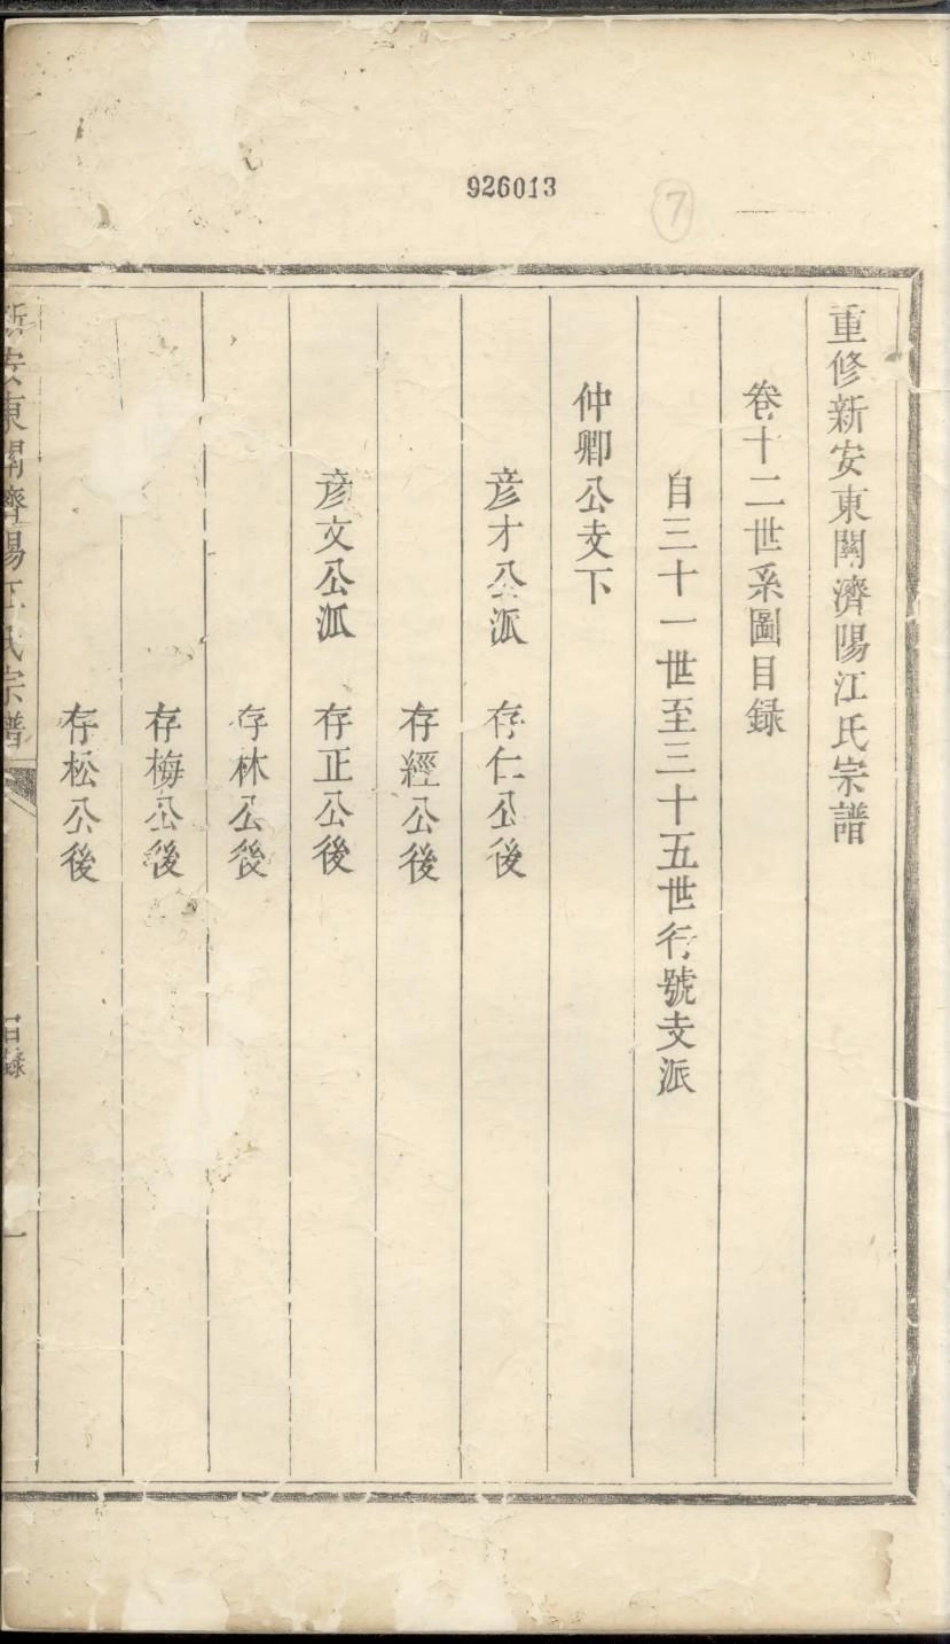 926013
7
重修新安東關濟陽江氏宗譜
卷十二世系圖目録
自三十一世至三十五世行號支派
仲卿公支下
彦才公派 存仁公後
存經公後
彦文公派 存正公後
存林公後
存梅公後
存松公後
新安東關濟陽江氏宗譜
目録
一